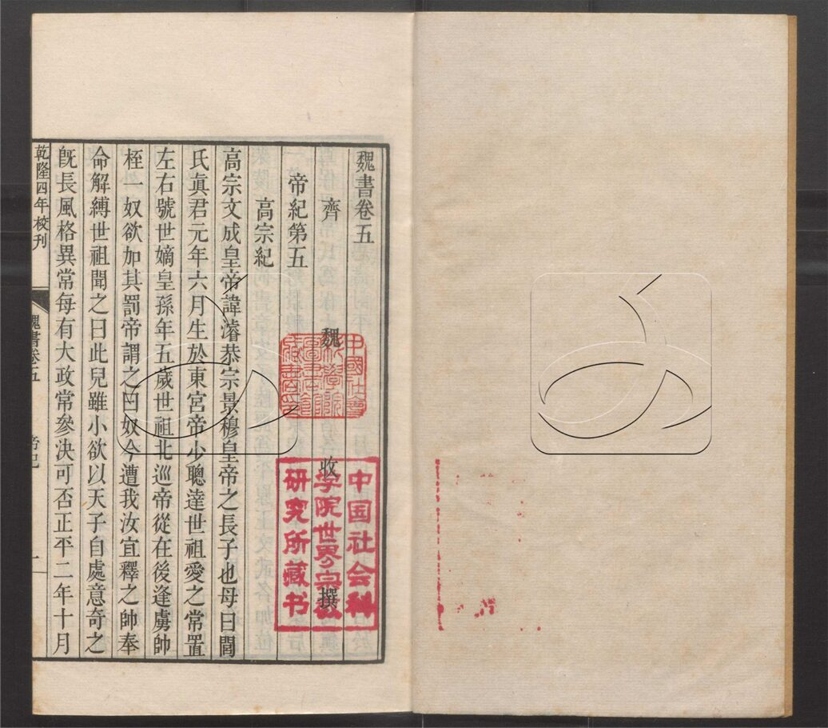 魏書卷五
齊 魏 收 撰
帝紀第五
高宗紀
高宗文成皇帝諱濬恭宗景穆皇帝之長子也母曰閭
氏真君元年六月生於東宮帝少聰達世祖愛之常置
左右號世嫡皇孫年五歲世祖北巡帝從在後逢虜帥
桎一奴欲加其罰帝謂之曰奴今遭我汝宜釋之帥奉
命解縛世祖聞之曰此兒雖小欲以天子自處意奇之
既長風格異常每有大政常參決可否正平二年十月
乾隆四年校刊
魏書卷五
帝紀
一
中国社会科
学院世界宗教
研究所藏书